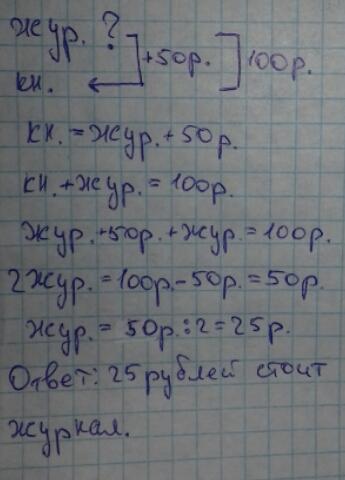 жур. ?
+50р. 100р.
кн.
кн. = жур. + 50р.
кн. + жур. = 100р.
жур. + 50р. + жур. = 100р.
2жур. = 100р. - 50р. = 50р.
жур. = 50р. : 2 = 25р.
Ответ: 25 рублей стоит
журнал.